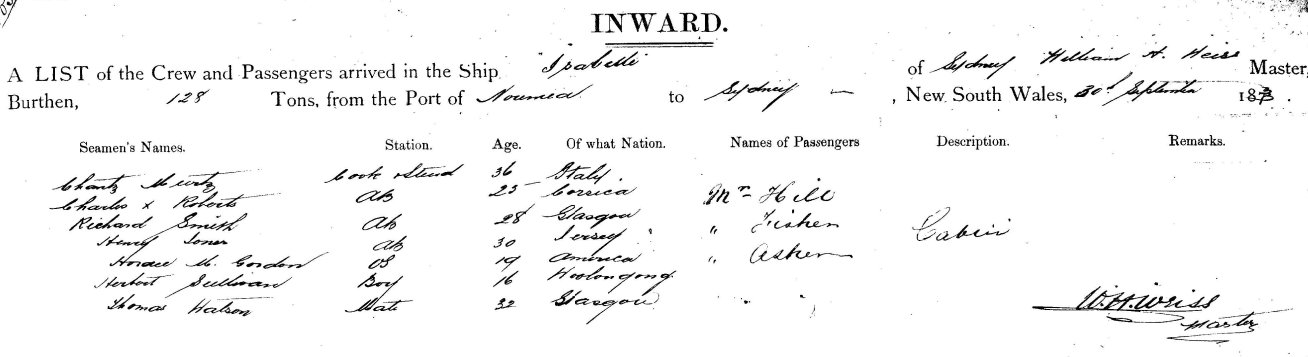 INWARD.
A LIST of the Crew and Passengers arrived in the Ship Isabelle of Sydney William H. Weiss Master,
Burthen, 128 Tons, from the Port of Noumea to Sydney — , New South Wales, 30th September 187
Seamen's Names. Station. Age. Of what Nation. Names of Passengers Description. Remarks.
Cook & Stend 36 Italy
Charles x Roberts AB 25 Corsica Mr Hill
Richard Smith AB 28 Glasgow " Fisken Cabin
Henry Jones AB 30 Jersey
Horace M. Gordon OS 19 America " Asken
Herbert Sullivan Boy 16 Woolongong
Thomas Watson Mate 32 Glasgow
W.H. Weiss
Master